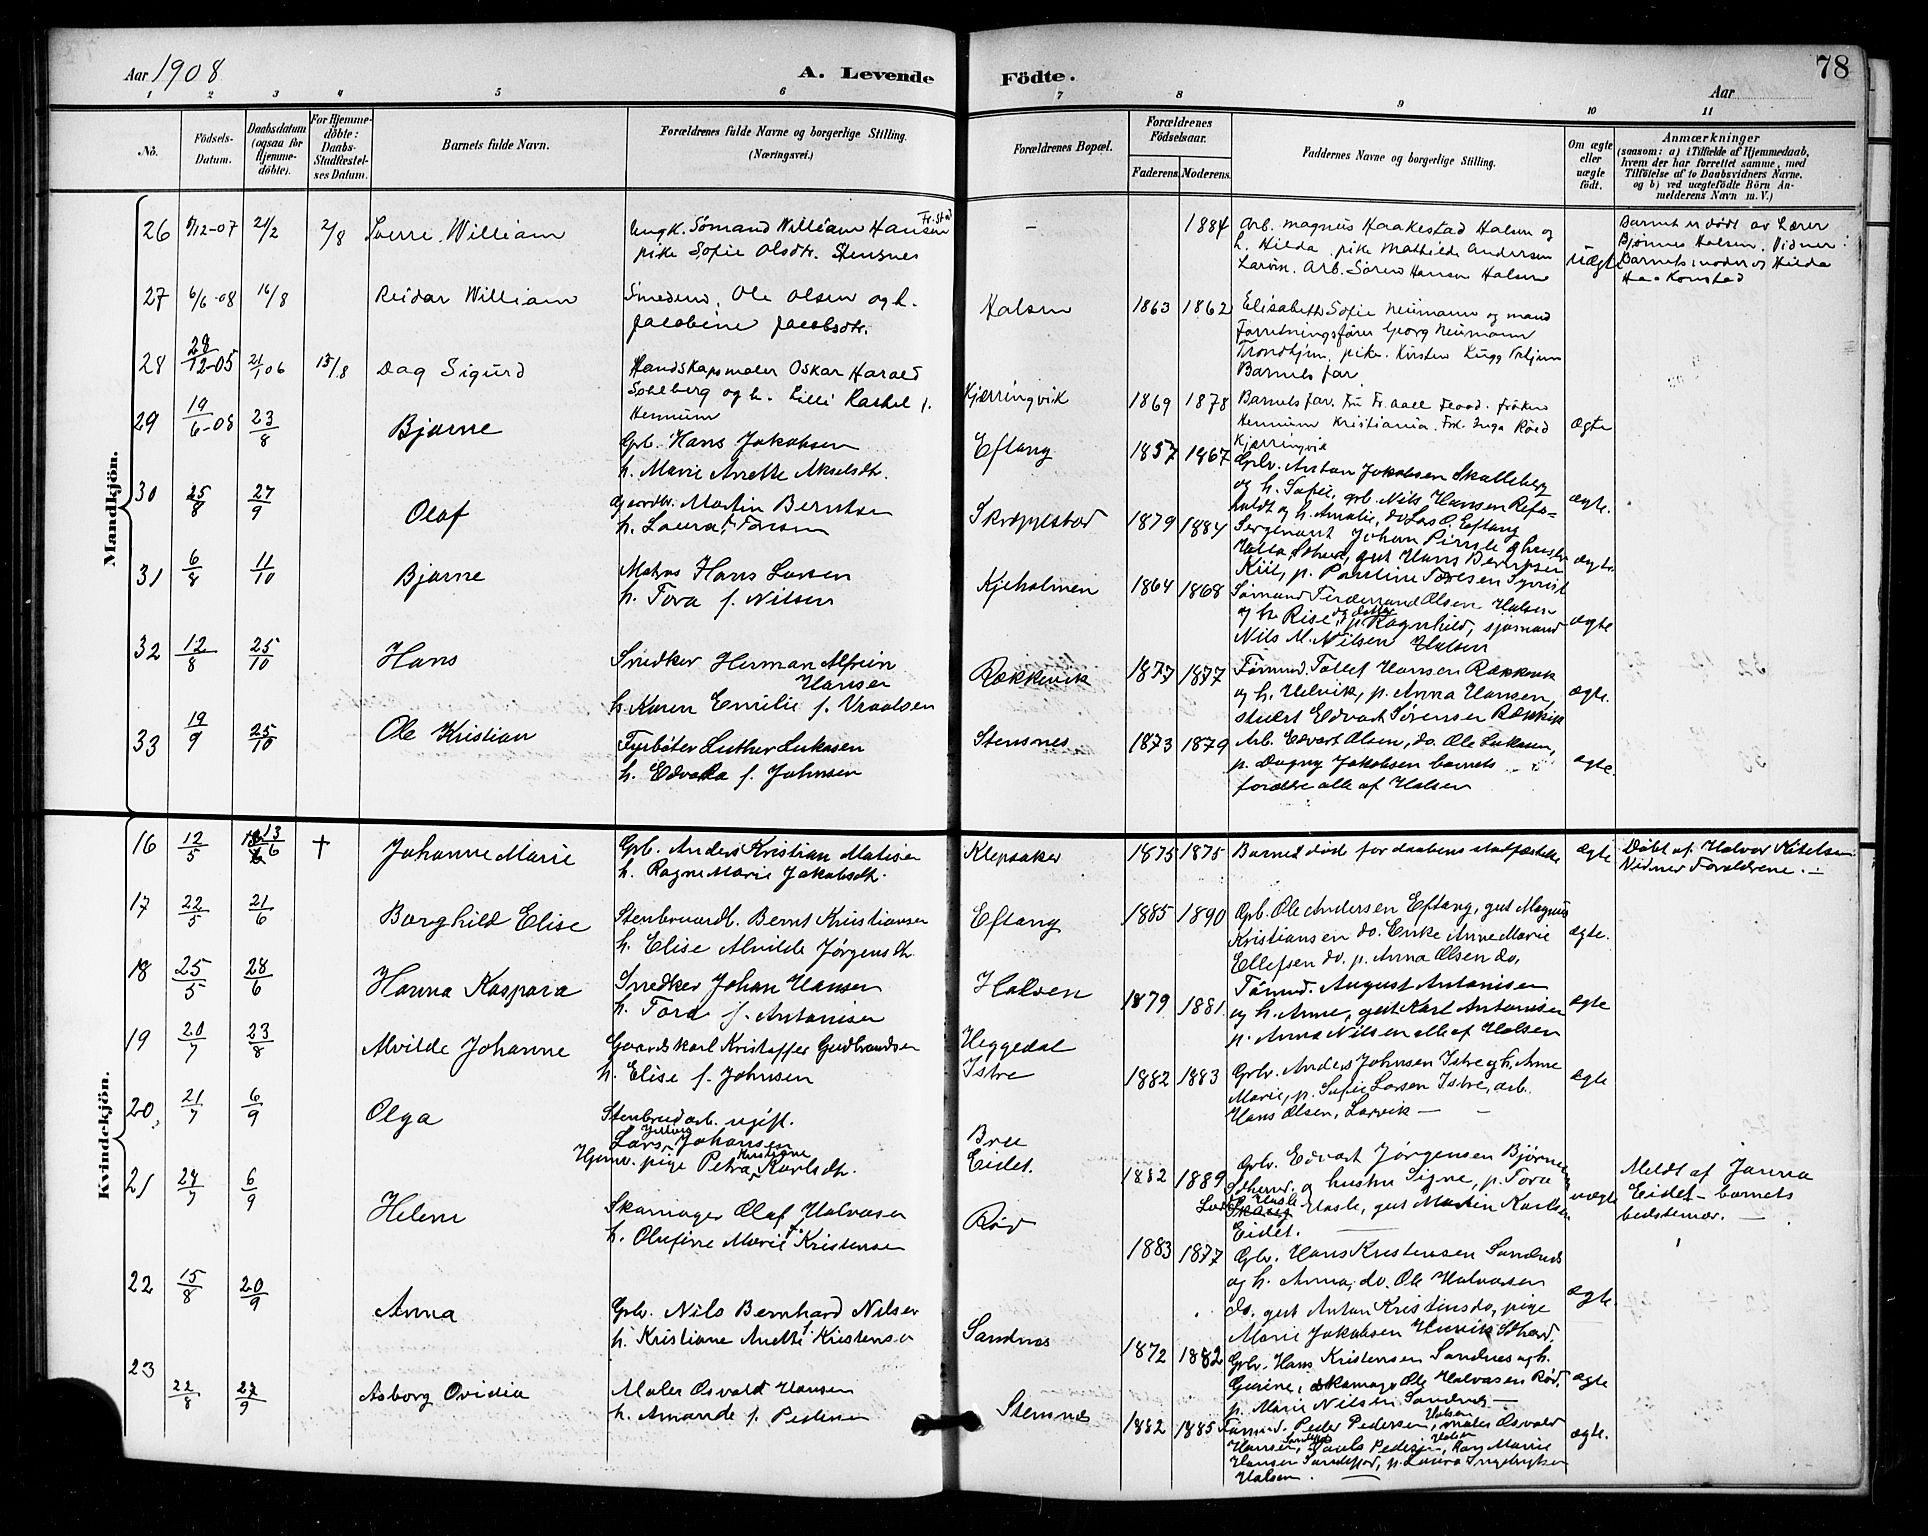 Aar 1908
A. Levende
Födte.
78
Aar
1 2 3 4 5 6 7 8 9 10 11
No.
Födsels-
Datum.
Daabsdatum
(ogsaa for
Hjemme-
döbte).
For Hjemme-
döbte:
Daabs-
Stadfæstel-
ses Datum.
Barnets fulde Navn.
Forældrenes fulde Navne og borgerlige Stilling.
(Næringsvei.)
Forældrenes Bopæl.
Forældrenes
Födselsaar.
Faderens. Moderens.
Faddernes Navne og borgerlige Stilling.
Om ægte
eller
uægte
födt.
Anmærkninger
(saasom: a) i Tilfælde af Hjemmedaab,
hvem der har forrettet samme, med
Tilföielse af to Daabsvidners Navne.
og b) ved uægtefödte Börn An-
melderens Navn m. V.)
Mandkjön.
26 9/12-07 2/2 2/8 Sverre William
Ungk. Sömand William Hansen Fr.stad
pike Sofie Olsdtr. Stensnes
– 1884
Arb. Magnus Haakestad Halsen og
h. Hilda, pike Mathilde Andersen
Larvik. Arb. Sören Hansen Halsen
uægte
Barnet er döbt av Lærer
Bjønnes Halsen. Vidner:
Barnets moder og Hilda
27 6/6-08 16/8 Reidar William
Smedem. Ole Olsen og h.
Jacobine Jacobsdtr.
Halsen 1863 1862
Elisabeth Sofie Neumann og mand
Forretningsfører Georg Neumann
Trondhjem, pike. Kirsten Kugg Trhjem
Barnets far
28 28/12-05 21/1 06 15/8 Dag Sigurd
Landskapsmaler Oskar Harald
Soelberg og h. Lilli Rachel f.
Hennum
Kjærringvik 1869 1878
Barnets far. Fru Fr. Aall Flood. Frøken
Hennum Kristiania. Frk. Inga Röed
Kjærringvik
ægte
29 19/6-08 23/8 Bjarne
Grb. Hans Jakobsen
h. Marie Anette Akselsdtr.
Eftang 1857 1867
Grbr. Anton Jakobsen Skalleberg
og h. Sofie, grb. Nils Hansen Refa-
holdt og h. Amalie, do Lars O. Eftang
ægte.
30 25/8 27/9 Olaf
Gaardbr. Martin Berntsen
h. Laura f. Larsen
Skropestad 1879 1884
Sergeant Johan Pirnle og hustru
ægte.
31 6/8 11/10 Bjarne
Matros Hans Larsen
h. Tora f. Nilsen
Kjeholmen 1864 1868
Sømand Ferdernand Olsen Halsen
og h. Rise, og datter p. Ragnhild, sjømand
Nils M. Nilsen Halsen
ægte
32 12/8 25/10 Hans
Snedker Herman Alfrein
Hansen
h. Karen Emilie f. Vraalsen
Rækkevik 1877 1877
Tømmd. Tollef Hansen Rækkevik
og h. Helvik, p. Anna Hansen,
stuert Edvart Sørensen Rækkvik
ægte.
33 19/9 25/10 Ole Kristian
Fyrbøter Luther Lukasen
h. Edvarda f. Johnsen
Stensnes 1873 1879
Arb. Edvart Olsen, do. Ole Lukasen,
p. Dagny Jakobsen barnets
forældre alle af Halsen
ægte.
Kvindekjön.
16 12/5 13/6 † Johanne Marie
Grb. Anders Kristian Matisen
h. Ragne Marie Jakobsdtr.
Klepaker 1875 1875
Barnet død før daabens stadfæstelse
ægte
Døbt af Halvor Kittelsen.
Vidner Forældrene.
17 22/5 21/6 Borghild Elise
Stenbruardb. Bernt Kristiansen
h. Elise Alvilde Jørgensdtr.
Eftang 1885 1890
Grb. Ole Andersen Eftang, gut Magnus
Kristiansen do. Enke Anne Marie
Ellefsen do. p. Anna Olsen do.
ægte.
18 25/5 28/6 Hanna Kaspara
Snedker Johan Hansen
h. Tora f. Antonisen
Halsen 1879 1881
Tømmd. August Antonisen
og h. Anne, gut Karl Antonisen
p. Anna Nilsen alle af Halsen
ægte
19 20/7 23/8 Alvilde Johanne
Gaardskarl Kristoffer Gudbrandsen
h. Elise f. Johnsen
Heggedal
Istre
1882 1883
Grbr. Anders Johnsen Istre og h. Anne
Marie, p. Sofie Larsen Istre, arb.
Hans Olsen, Larvik –
ægte
20. 21/7 6/9 Olga
Stenbrudarb. ugift.
Lars Johansen
Hjemv. pige Petra Kristiane Karlsdtr.
Bree
Eidet.
1882 1889
Grbr. Edvart Jørgensen Bjørnes
og hustru Signe, p. Tora
Hasle, gut Martin Karlsen
Eidet.
uægte
Meldt af Janna
Eidet – barnets
bedstemor. –
21 24/7 6/9 Helene
Skomager Olaf Halvorsen
h. Olufine Marie f. Kristensen
Rød 1883 1877
Gbr. Hans Kristensen Sandnes
og h. Anna, do. Ole Halvorsen
do. gut Anton Kristens do, pige
Marie Jakobsen
ægte.
22 15/8 20/9 Anna
Grb. Nils Bernhard Nilsen
h. Kristiane Anette f. Kristensen
Sandnes 1872 1882
Grbr. Hans Kristensen Sandnes og h.
Gurine, skomager Ole Halvorsen Rød,
p. Marie Nilsen Sandnes –
ægte
23 22/8 27/9 Asborg Ovidia
Maler Osvald Hansen
h. Amanda f. Pedersen
Stensnes 1882 1885
Tømmd. Peder Pedersen Halsen, maler Osvald
Hansen, Sandefjord Pedersen Halsen, Marie
Hansen Sandefjord, p. Laura Ingebrigtsen
Halsen. –
ægte.